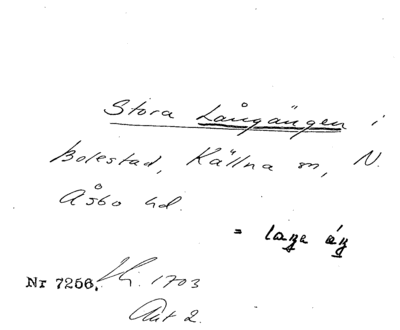 Stora Långängen i
Bolestad, Källna sn, N.
Åsbo hd.
= laŋe éŋ
Nr 7256. Lh. 1703
Akt 2.